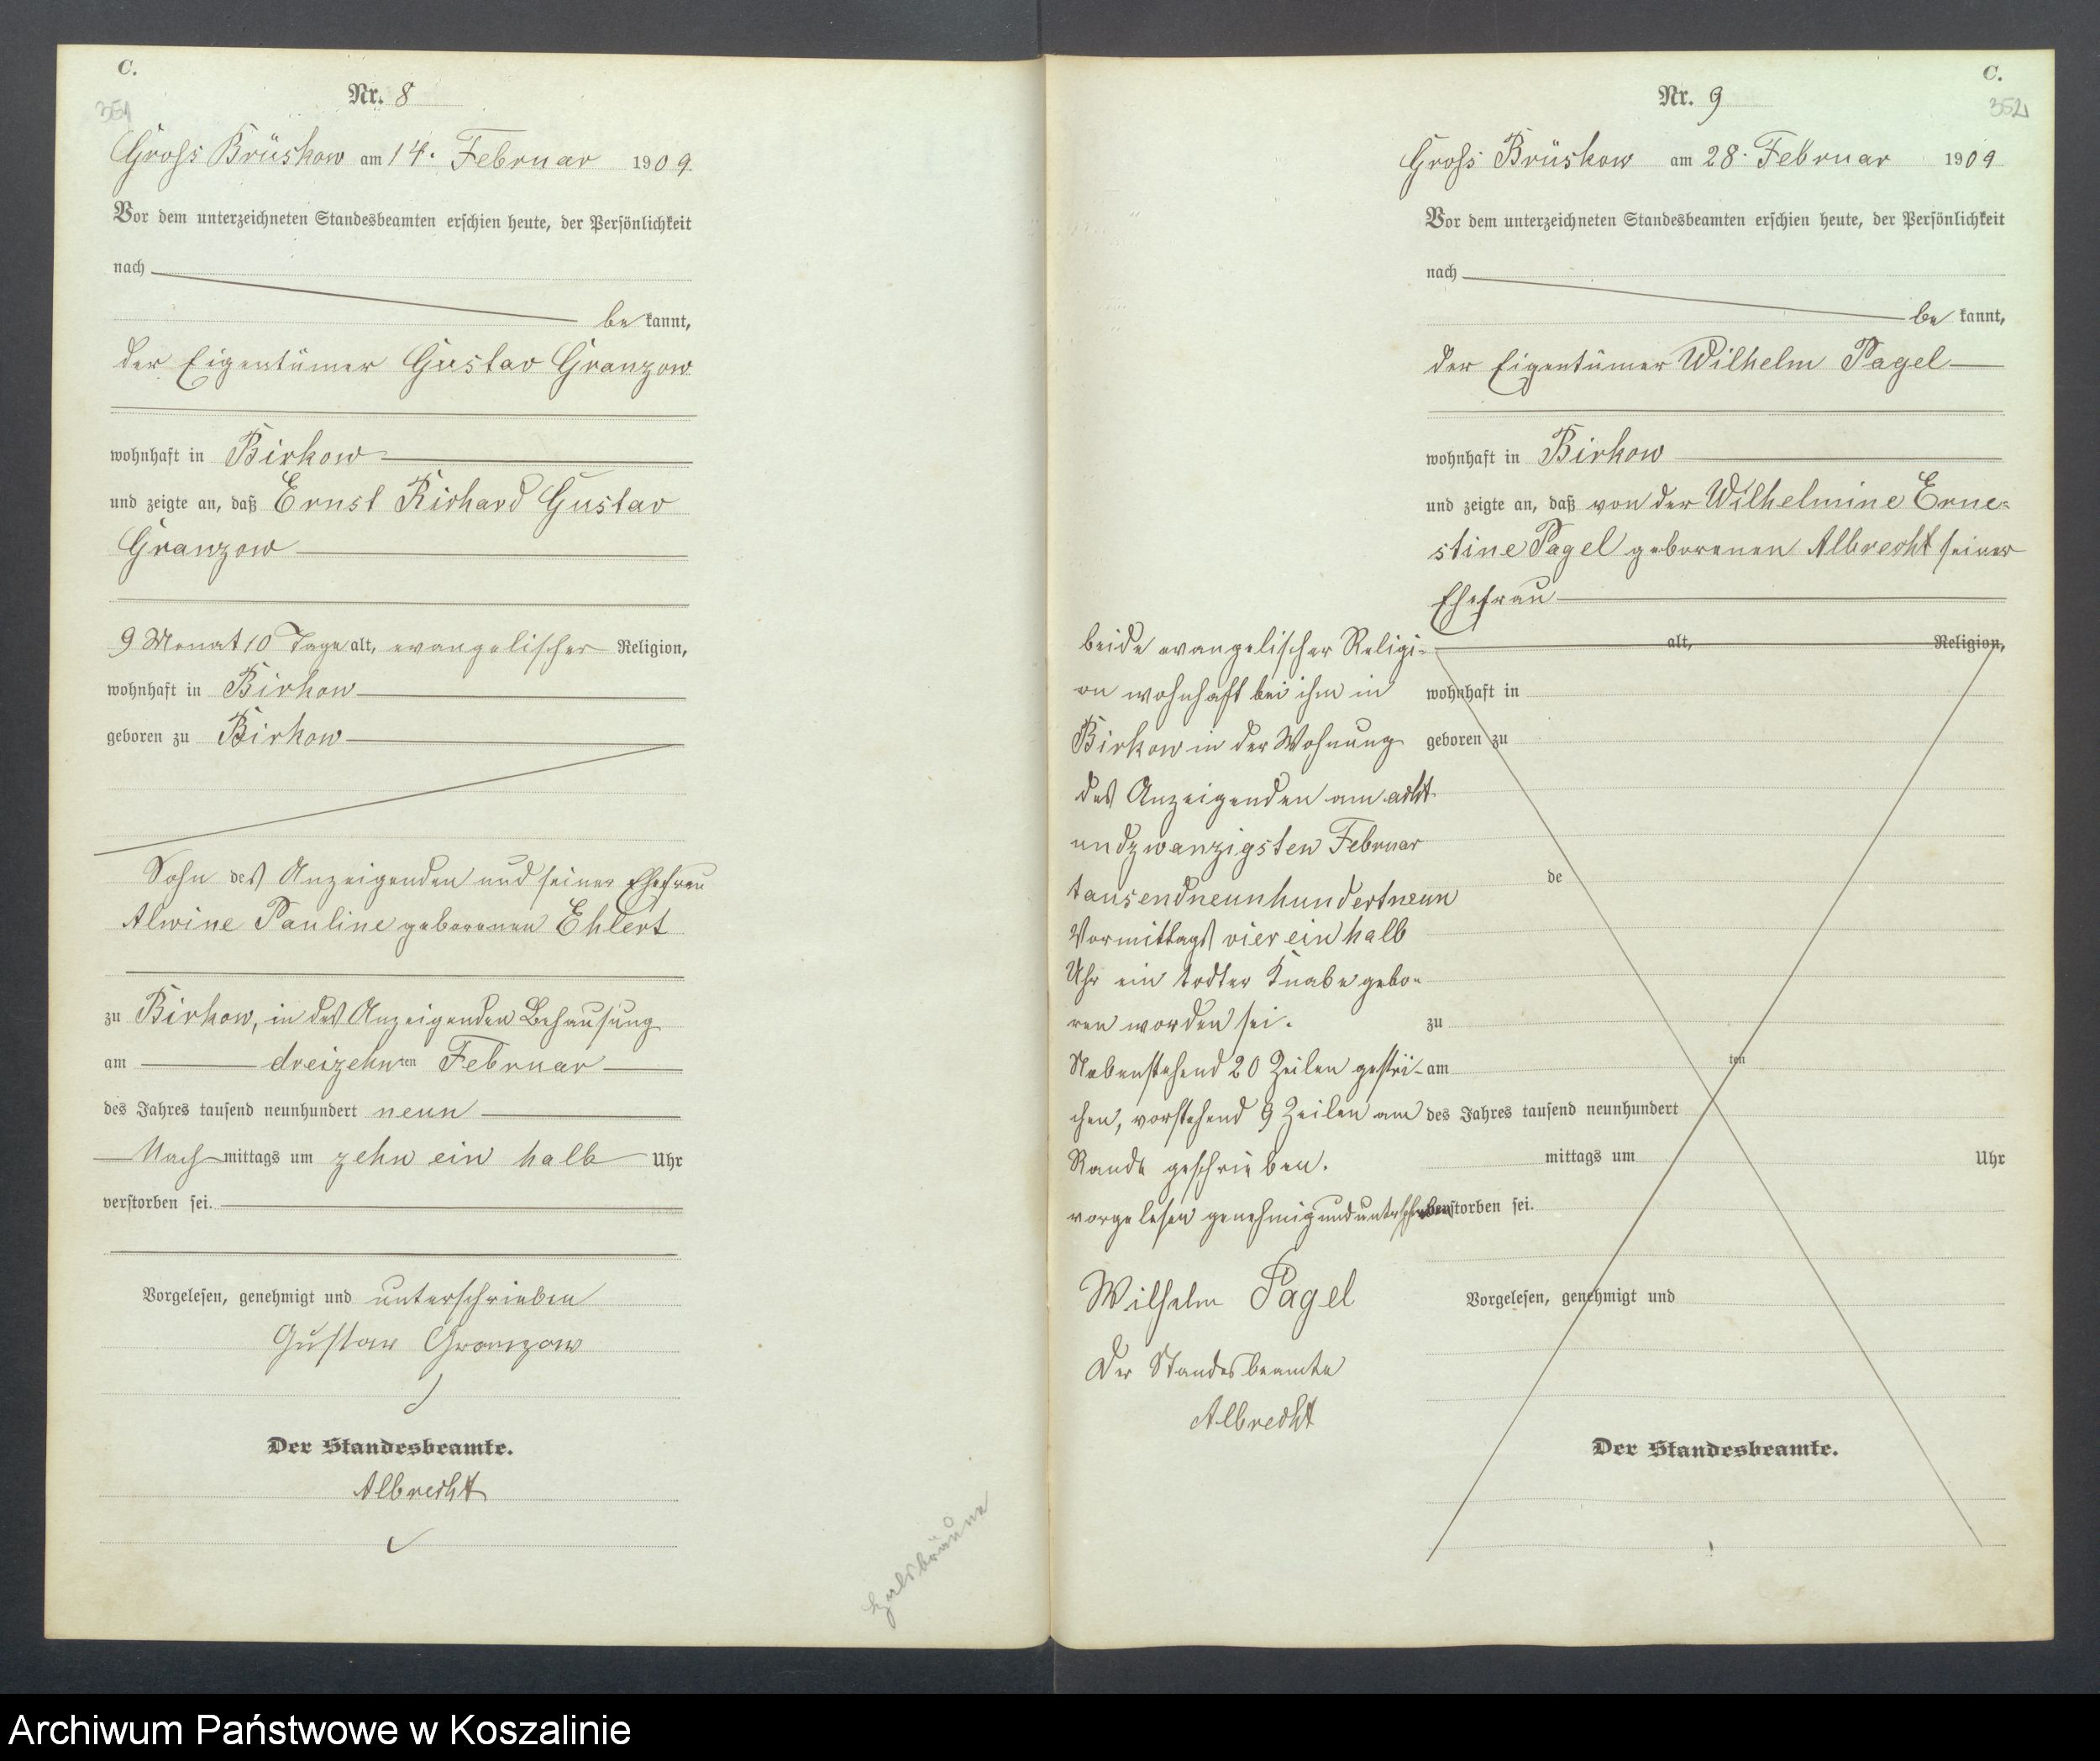 C.
351
Nr. 8
Gross Brüskow am 14. Februar 1909.
Vor dem unterzeichneten Standesbeamten erschien heute, der Persönlichkeit
nach
be kannt,
der Eigentümer Gustav Granzow
wohnhaft in Birkow
und zeigte an, daß Ernst Richard Gustav
Granzow
9 Monat 10 Tage alt, evangelischer Religion,
wohnhaft in Birkow
geboren zu Birkow
Sohn des Anzeigenden und seiner Ehefrau
Alwine Pauline geborenen Ehlert
zu Birkow, in des Anzeigenden Behausung
am dreizehnten Februar
des Jahres tausend neunhundert neun
Nachmittags um zehn ein halb Uhr
verstorben sei.
Vorgelesen, genehmigt und unterschrieben
Gustav Granzow
Der Standesbeamte.
Albrecht
Halsbräune
C.
352
Nr. 9
Gross Brüskow am 28. Februar 1909
Vor dem unterzeichneten Standesbeamten erschien heute, der Persönlichkeit
nach
be kannt,
der Eigentümer Wilhelm Pagel
wohnhaft in Birkow
und zeigte an, daß von der Wilhelmine Erne=
stine Pagel geborenen Albrecht seiner
Ehefrau
alt, Religion,
wohnhaft in
geboren zu
de
zu
am ten
des Jahres tausend neunhundert
mittags um Uhr
verstorben sei.
Vorgelesen, genehmigt und
Der Standesbeamte.
beide evangelischer Religi-
on wohnhaft bei ihm in
Birkow in der Wohnung
des Anzeigenden am acht-
undzwanzigsten Februar
tausendneunhundertneun
Vormittags vier ein halb
Uhr ein todter Knabe gebo-
ren worden sei.
Nebenstehend 20 Zeilen gestri-
chen, vorstehend 9 Zeilen am
Rande geschrieben.
vorgelesen genehmig und unterschrieben
Wilhelm Pagel
Der Standesbeamte
Albrecht
Archiwum Państwowe w Koszalinie